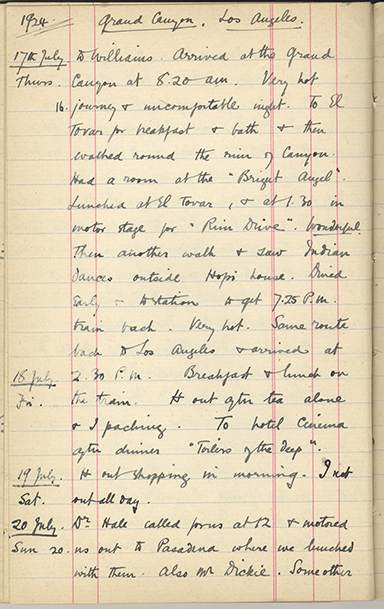 1924. Grand Canyon. Los Angeles.
17th July. to Williams. Arrived at the Grand
Thurs. Canyon at 8.20 am. Very hot
16. journey & uncomfortable night. To El
Tovar for breakfast & bath & then
walked round the rim of Canyon.
Had a room at the "Bright Angel".
Lunched at El Tovar, & at 1.30 in
motor stage for "Rim Drive". Wonderful.
Then another walk & saw Indian
Dances outside Hopi house. Dined
Early & to station to get 7.25 P.m.
train back. Very hot. Same route
back to Los Angeles & arrived at
18 July. 2.30 P.m. Breakfast & lunch on
Fri. the train. H out after tea alone
& I packing. To hotel Cinema
after dinner "Toilers of the Deep".
19 July. H out shopping in morning. I not
Sat. out all day.
20 July. Dr. Hale called for us at 12 & motored
Sun 20. us out to Pasadena where we lunched
with them. Also Mr Dickie. Some other